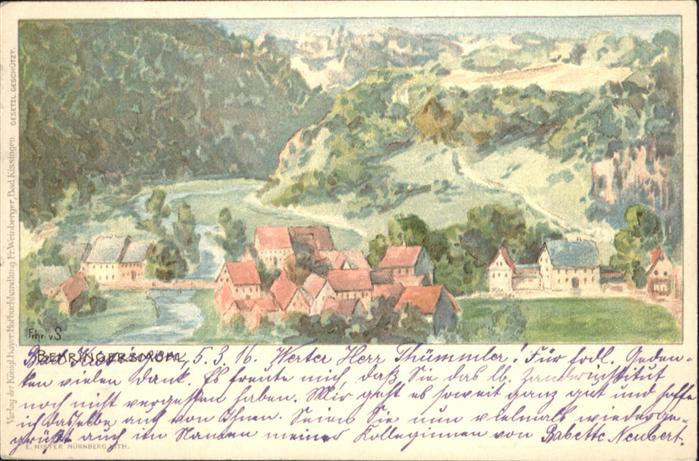 Verlag der Königl. Bayer. Hofbuchhandlung Fr. Weinberger, Bad Kissingen. GESETZL. GESCHÜTZT.
Frhr. v S
BEHRINGERSMÜHL
5. 3. 16. Werter Herr Thümmler! Für frdl. Geden-
ken vielen Dank. Es freute mich, daß Sie das lb.
noch nicht vergessen haben. Mir geht es soweit ganz gut und hoffe
ich dasselbe auch von Ihnen. Seien Sie nun vielmals wiederge-
grüßt auch im Namen meiner Kolleginnen von Babette Neubert.
E. NISTER NÜRNBERG LITH.